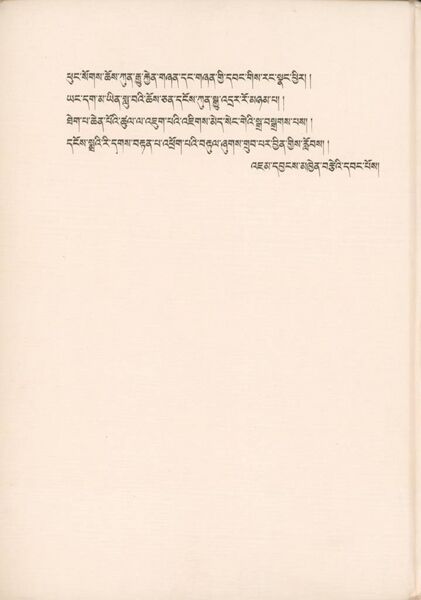 ཕུང་སོགས་ཆོས་ཀུན་རྒྱུ་རྐྱེན་གཞན་དང་གཞན་གྱི་དབང་གིས་རང་སྣང་ཕྱིར། །
ཡང་དག་མ་ཡིན་སླུ་བའི་ཆོས་ཅན་དངོས་ཀུན་སྒྱུ་འདྲར་རོ་མཉམ་པ། །
ཐེག་པ་ཆེན་པོའི་ཚུལ་ལ་འཇུག་པའི་འཇིགས་མེད་སེང་གེའི་སྒྲ་བསྒྲགས་པས། །
དངོས་སྨྲའི་རི་དྭགས་བརྟན་པ་འཕྲོག་པའི་བརྟུལ་ཞུགས་གྲུབ་པར་བྱིན་གྱིས་རློབས། །
འཇམ་དབྱངས་མཁྱེན་བརྩེའི་དབང་པོས།